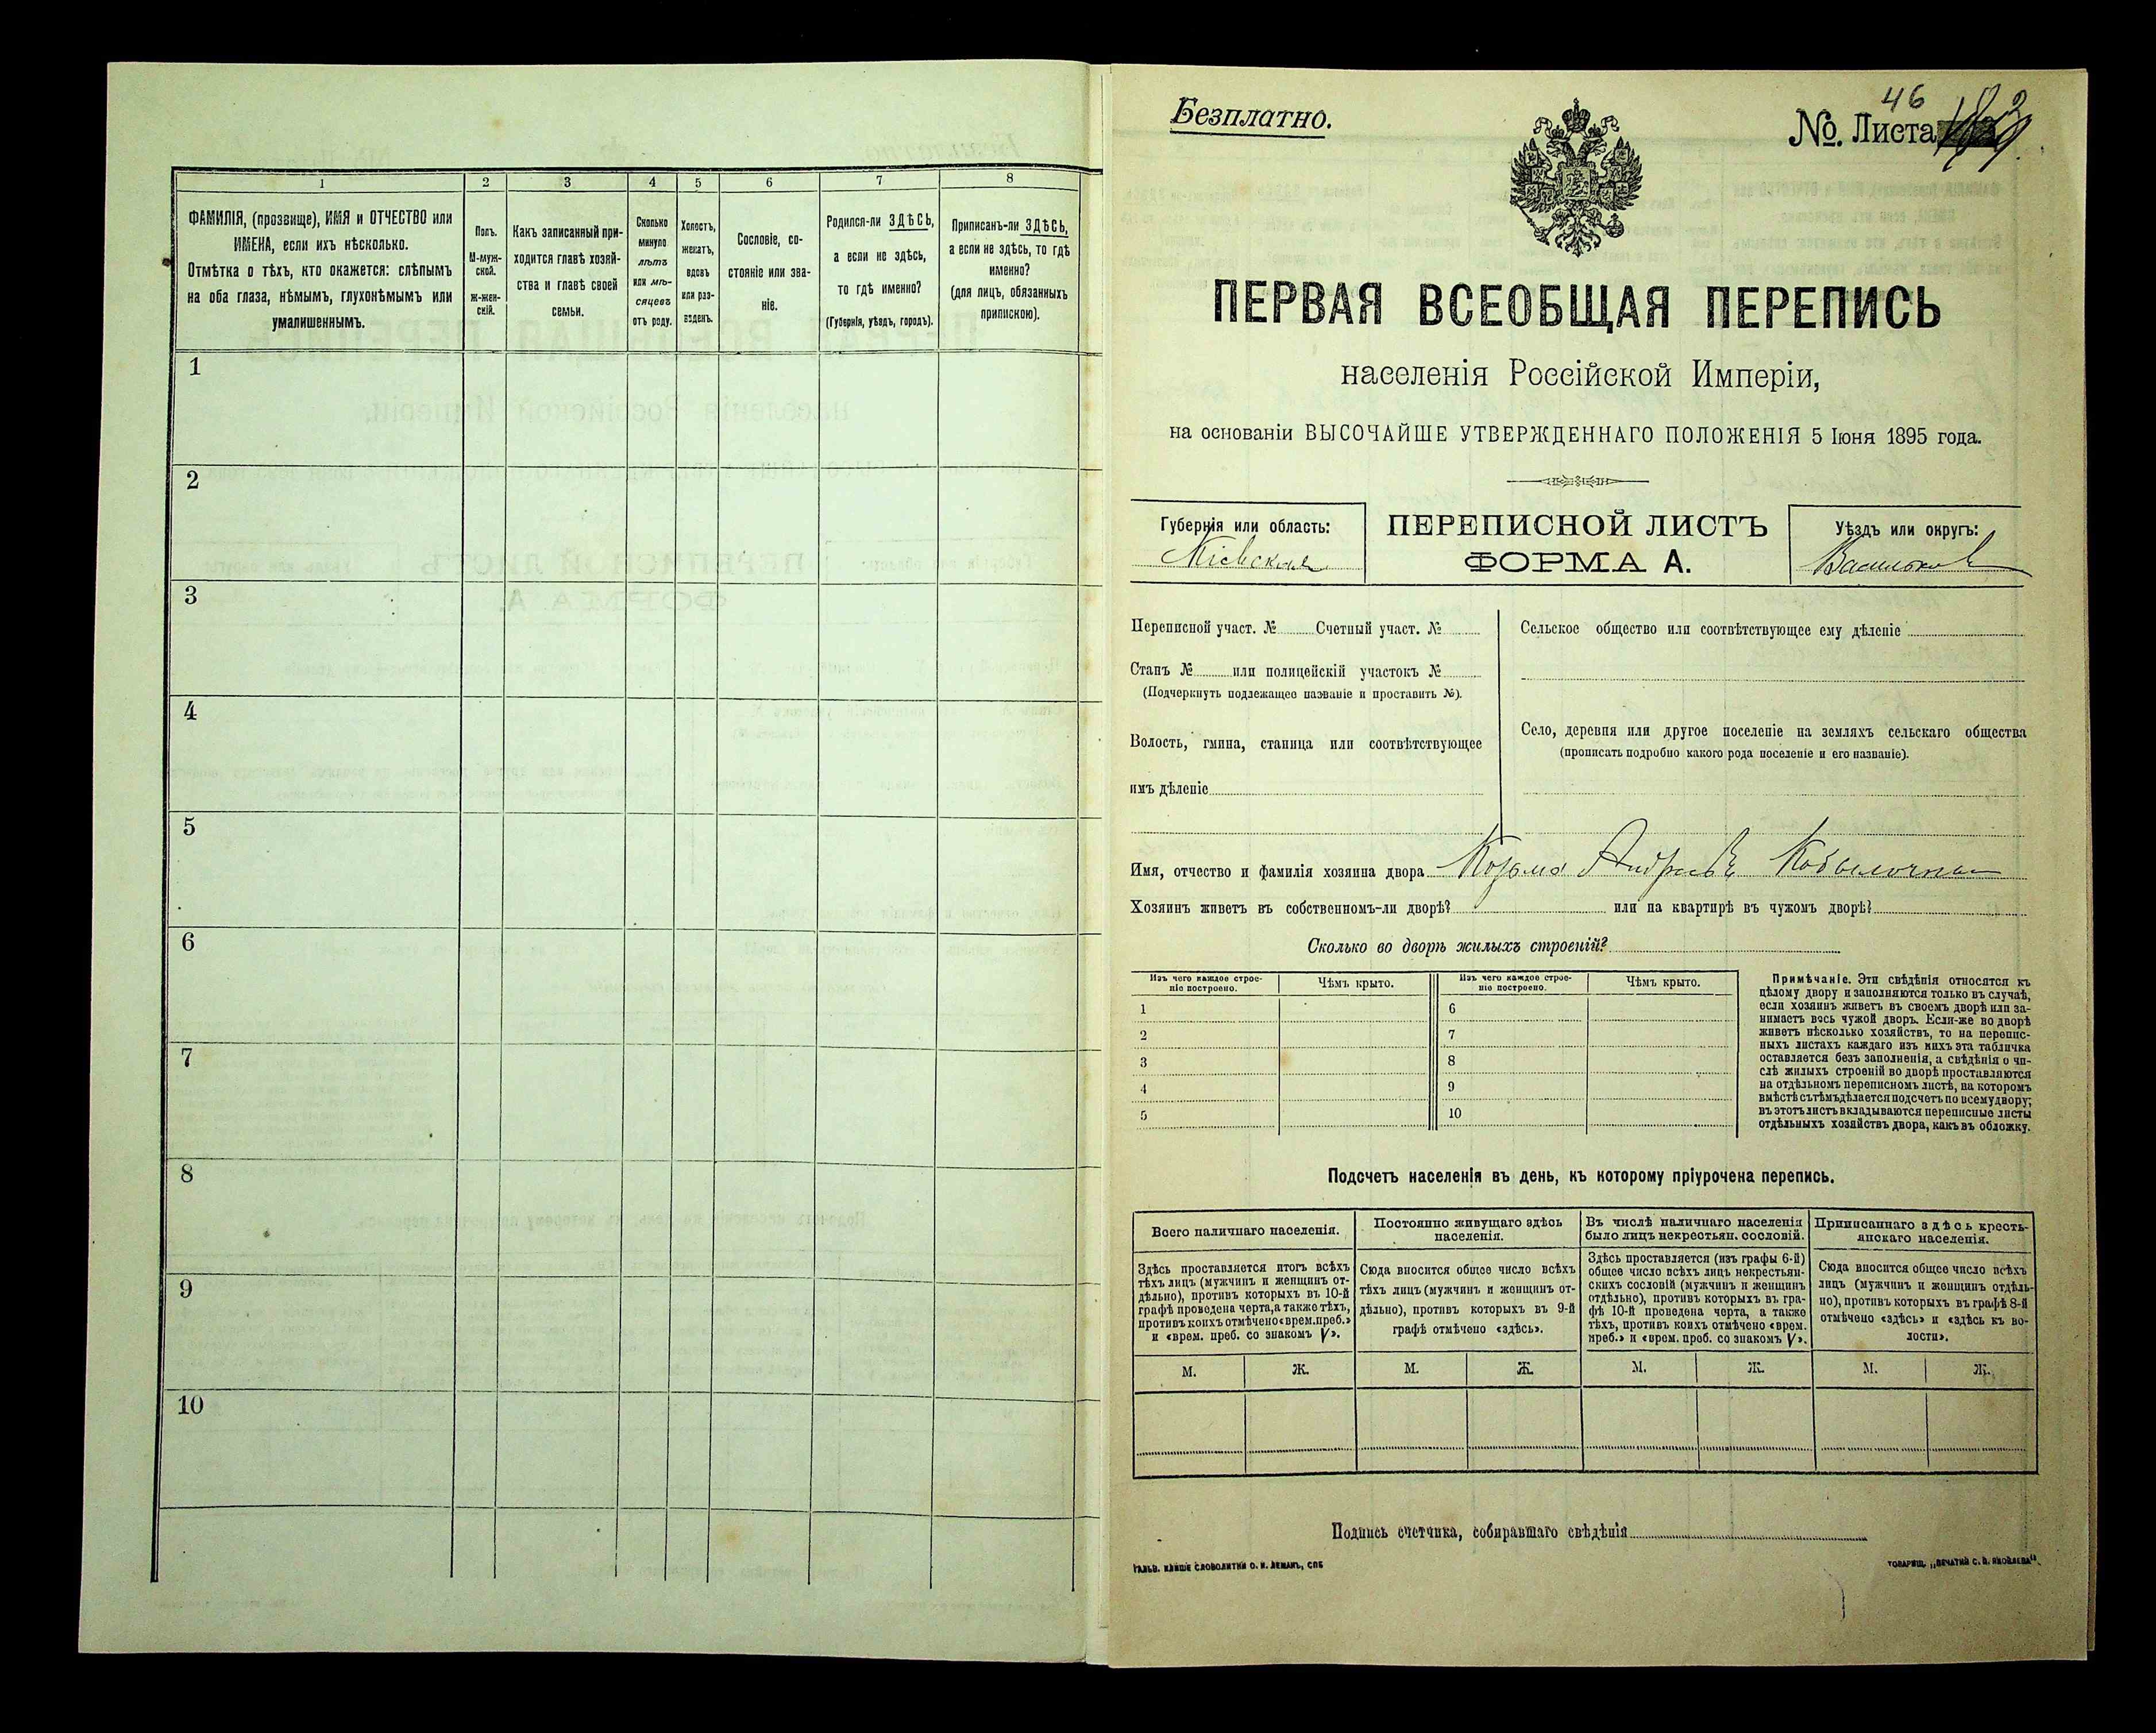 1 2 3 4 5 6 7 8
ФАМИЛІЯ, (прозвище), ИМЯ и ОТЧЕСТВО или
ИМЕНА, если ихъ нѣсколько.
Отмѣтка о тѣхъ, кто окажется: слѣпымъ
на оба глаза, нѣмымъ, глухонѣмымъ или
умалишеннымъ.
Полъ.
М-муж-
ской.
ж-жен-
скій.
Какъ записанный при-
ходится главѣ хозяй-
ства и главѣ своей
семьи.
Сколько
минуло
лѣтъ
или мѣ-
сяцевъ
отъ роду.
Холостъ,
женатъ,
вдовъ
или раз-
веденъ.
Сословіе, со-
стояніе или зва-
ніе.
Родился-ли ЗДѢСЬ,
а если не здѣсь,
то гдѣ именно?
(Губернія, уѣздъ, городъ).
Приписанъ-ли ЗДѢСЬ,
а если не здѣсь, то гдѣ
именно?
(для лицъ, обязанныхъ
припискою).
1
2
3
4
5
6
7
8
9
10
Безплатно.
46
№. Листа
ПЕРВАЯ ВСЕОБЩАЯ ПЕРЕПИСЬ
населенія Россійской Имперіи,
на основаніи ВЫСОЧАЙШЕ УТВЕРЖДЕННАГО ПОЛОЖЕНІЯ 5 Іюня 1895 года.
Губернія или область:
Кіевская
ПЕРЕПИСНОЙ ЛИСТЪ
ФОРМА А.
Уѣздъ или округъ:
Васильков
Переписной участ. № Счетный участ. №
Станъ № или полицейскій участокъ №
(Подчеркнуть подлежащее названіе и проставить №).
Волость, гмина, станица или соотвѣтствующее
имъ дѣленіе
Сельское общество или соотвѣтствующее ему дѣленіе
Село, деревня или другое поселеніе на земляхъ сельскаго общества
(прописать подробно какого рода поселеніе и его названіе).
Имя, отчество и фамилія хозяина двора Козьма Андреевъ
Хозяинъ живетъ въ собственномъ-ли дворѣ? или на квартирѣ въ чужомъ дворѣ?
Сколько во дворѣ жилыхъ строеній?
Изъ чего каждое строе-
ніе построено.
Чѣмъ крыто.
Изъ чего каждое строе-
ніе построено.
Чѣмъ крыто.
1 6
2 7
3 8
4 9
5 10
Примѣчаніе. Эти свѣдѣнія относятся къ
цѣлому двору и заполняются только въ случаѣ,
если хозяинъ живетъ въ своемъ дворѣ или за-
нимаетъ весь чужой дворъ. Если-же во дворѣ
живетъ нѣсколько хозяйствъ, то на перепис-
ныхъ листахъ каждаго изъ нихъ эта табличка
оставляется безъ заполненія, а свѣдѣнія о чи-
слѣ жилыхъ строеній во дворѣ проставляются
на отдѣльномъ переписномъ листѣ, на которомъ
вмѣстѣ съ тѣмъ дѣлается подсчетъ по всему двору;
въ этотъ листъ вкладываются переписные листы
отдѣльныхъ хозяйствъ двора, какъ въ обложку.
Подсчетъ населенія въ день, къ которому пріурочена перепись.
Всего наличнаго населенія.
Постоянно живущаго здѣсь
населенія.
Въ числѣ наличнаго населенія
было лицъ некрестьян. сословій.
Приписаннаго здѣсь кресть-
янскаго населенія.
Здѣсь проставляется итогъ всѣхъ
тѣхъ лицъ (мужчинъ и женщинъ от-
дѣльно), противъ которыхъ въ 10-й
графѣ проведена черта, а также тѣхъ,
противъ коихъ отмѣчено «врем. преб.»
и «врем. преб. со знакомъ V».
Сюда вносится общее число всѣхъ
тѣхъ лицъ (мужчинъ и женщинъ от-
дѣльно), противъ которыхъ въ 9-й
графѣ отмѣчено «здѣсь».
Здѣсь проставляется (изъ графы 6-й)
общее число всѣхъ лицъ некрестьян-
скихъ сословій (мужчинъ и женщинъ
отдѣльно), противъ которыхъ въ гра-
фѣ 10-й проведена черта, а также
тѣхъ, противъ коихъ отмѣчено «врем.
преб.» и «врем. преб. со знакомъ V».
Сюда вносится общее число всѣхъ
лицъ (мужчинъ и женщинъ отдѣль-
но), противъ которыхъ въ графѣ 8-й
отмѣчено «здѣсь» и «здѣсь къ во-
лости».
М. Ж. М. Ж. М. Ж. М. Ж.
Подпись счетчика, собиравшаго свѣдѣнія
ГАЛЬВ. КЛИШЕ СЛОВОЛИТНИ О. И. ЛЕМАНЪ, СПБ
ТОВАРИЩ. „ПЕЧАТНИ С. П. ЯКОВЛЕВА".